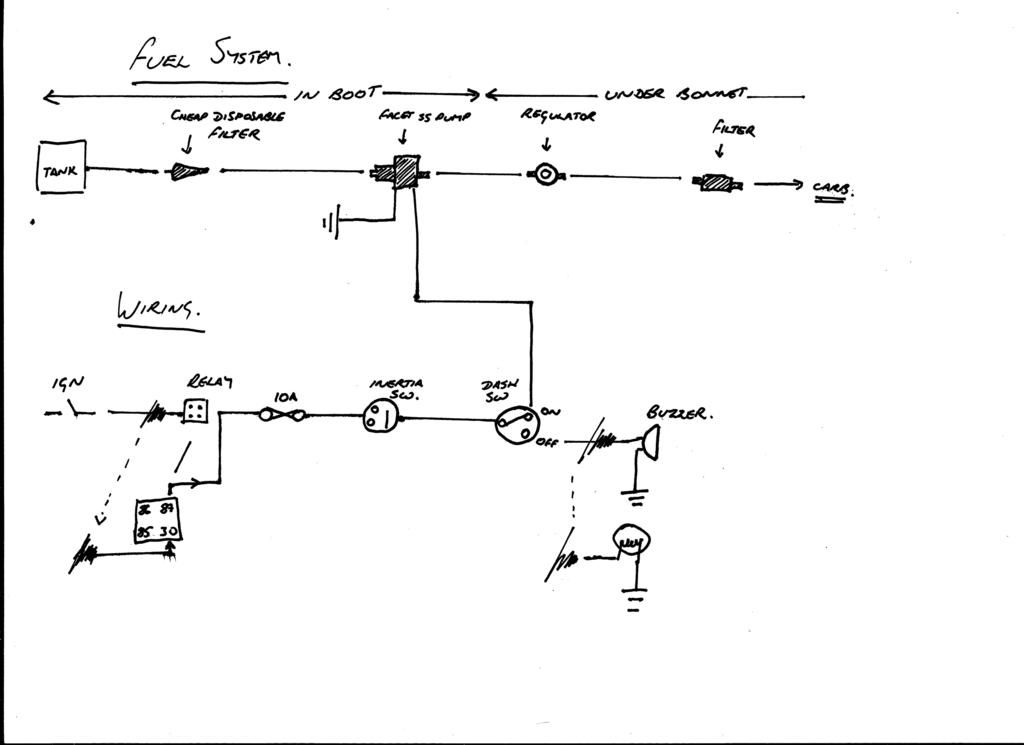 FUEL SYSTEM.
IN BOOT
UNDER BONNET
CHEAP DISPOSABLE
FILTER
FACET SS PUMP
REGULATOR
FILTER
TANK
CARB.
WIRING.
IGN
RELAY
10A
INERTIA
SW.
DASH
SW
ON
OFF
BUZZER.
86 87
85 30